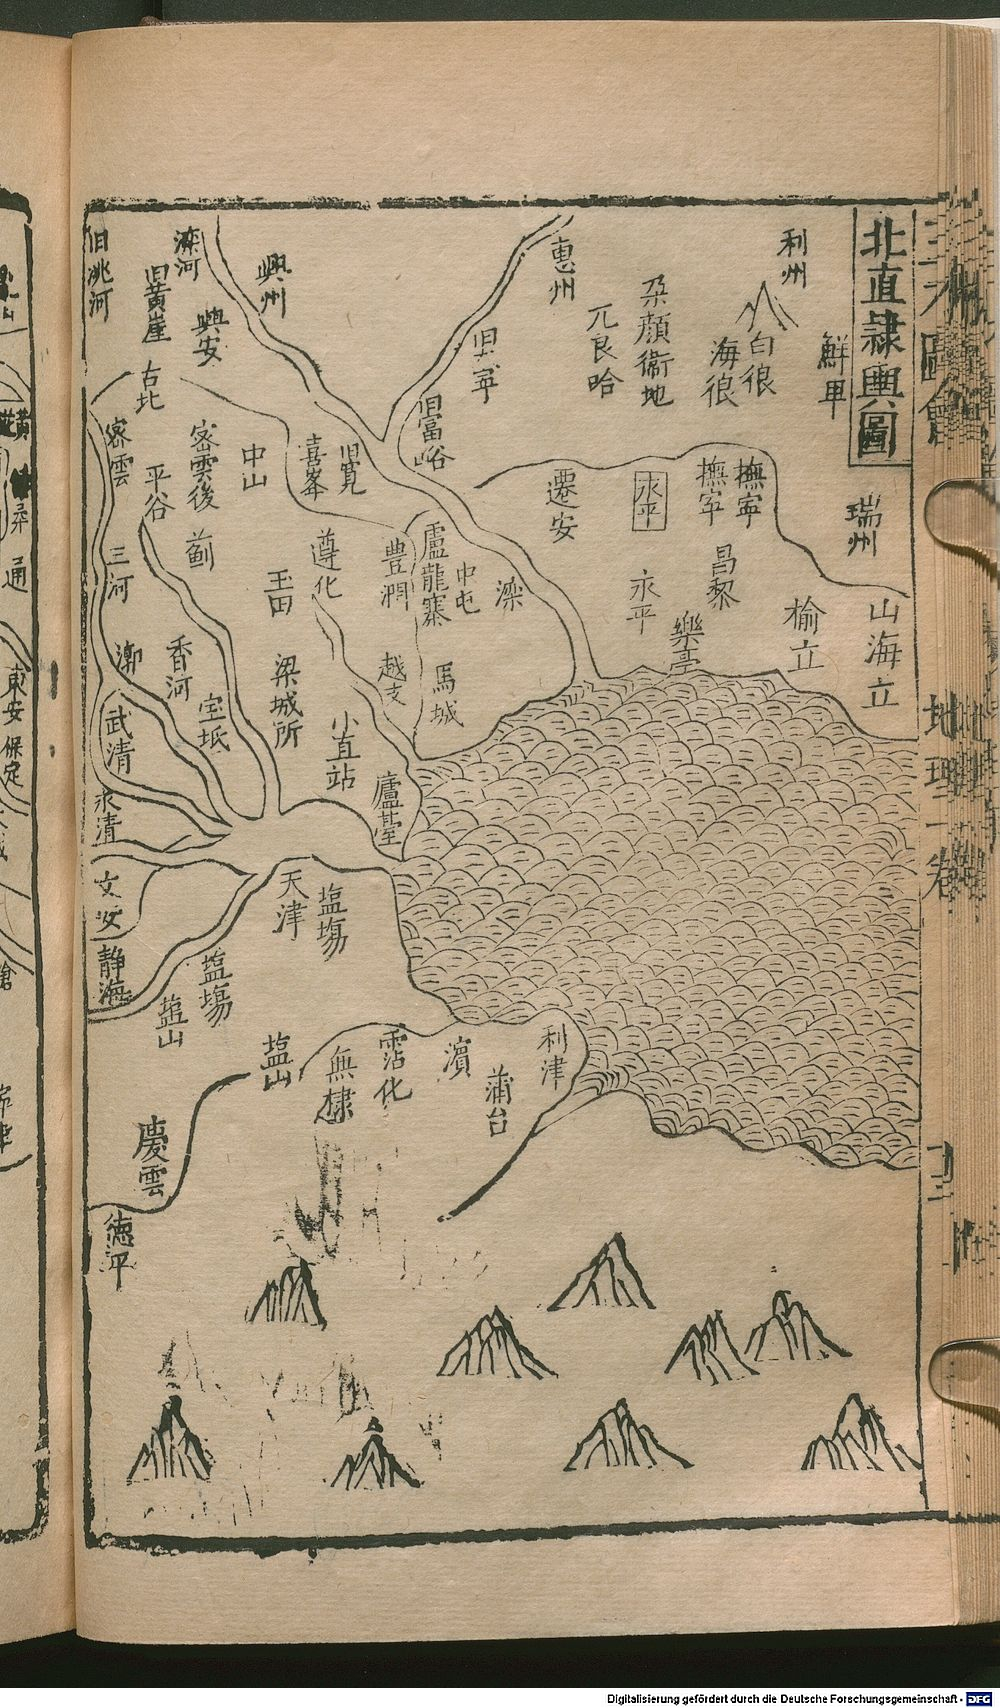 北直隸輿圖
利州
鮮卑
白狼
海狼
朶顏衞地
兀良哈
惠州
旧富峪
興州
灤河
興安
旧黃崖
古北
瑞州
山海立
榆立
撫寕
撫寕
永平
昌黎
樂亭
永平
遷安
灤
中屯
盧龍寨
馬城
豊潤
越支
喜峯
遵化
中山
玉田
梁城所
小直站
廬䑓
密雲後
薊
密雲
平谷
三河
香河
宝坻
漷
武清
永清
文安
靜海
天津
塩塲
塩塲
塩山
無棣
霑化
濱
蒲台
利津
慶雲
德平
地理一卷
通
東安
保定
Digitalisierung gefördert durch die Deutsche Forschungsgemeinschaft - DFG